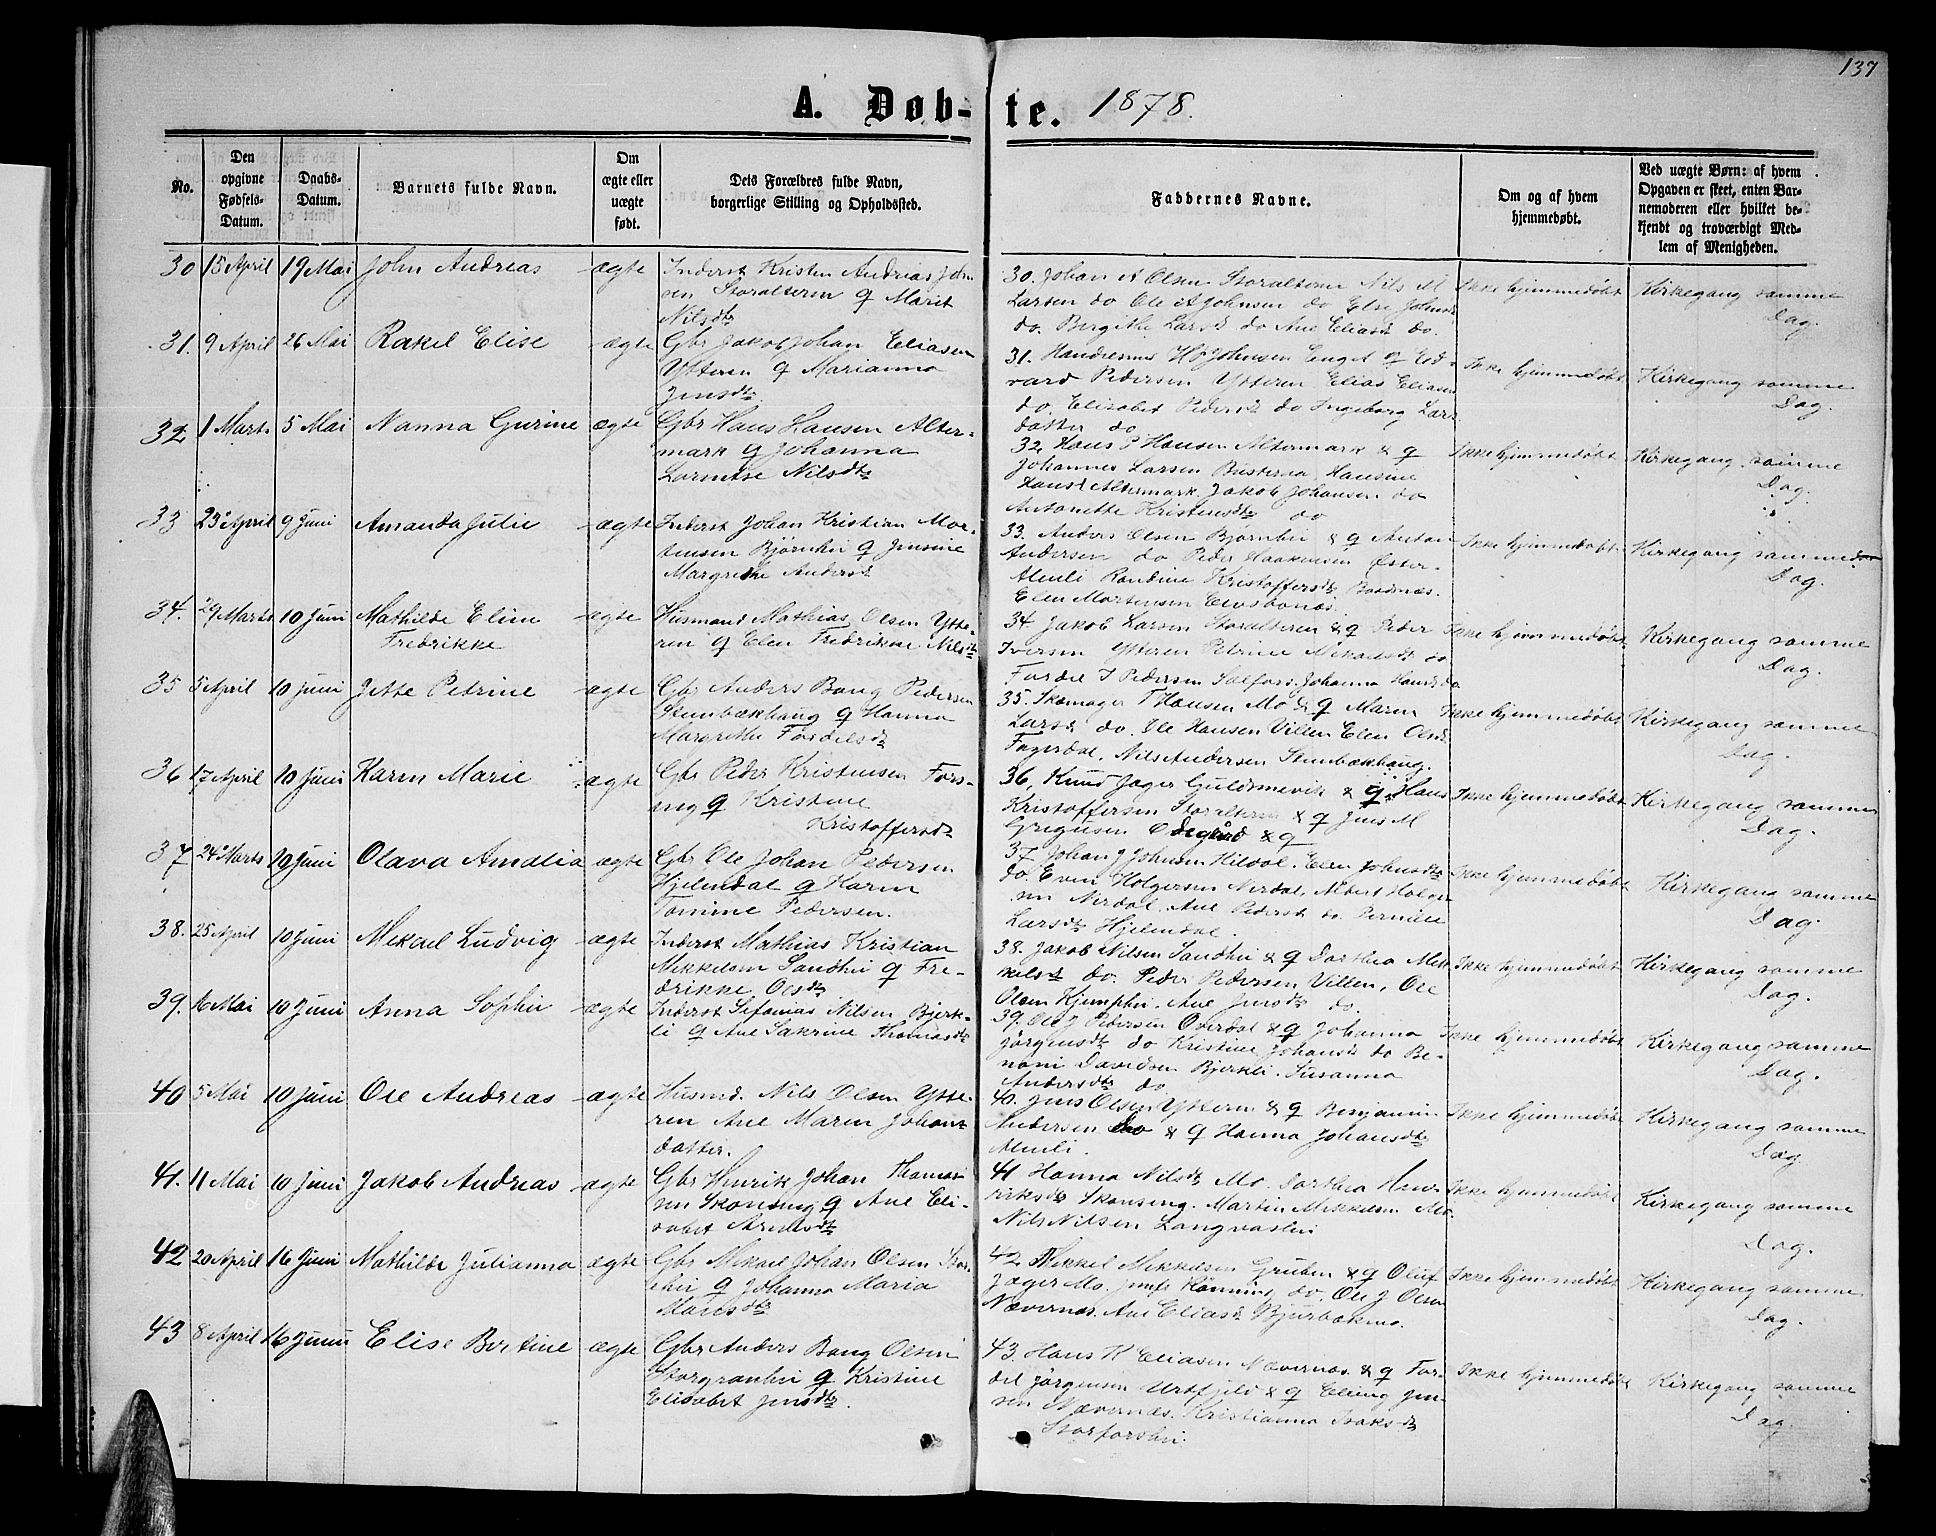 137
A. Døb-te. 1878.
No.
Den opgivne Fødsels-Datum.
Daabs-Datum.
Barnets fulde Navn.
Om ægte eller uægte født.
Dets Forældres fulde Navn, borgerlige Stilling og Opholdssted.
Faddernes Navne.
Om og af hvem hjemmedøbt.
Ved uægte Børn: af hvem Opgaven er skeet, enten Barnemoderen eller hvilket bekjendt og troværdigt Medlem af Menigheden.
30 15 April 19 Mai John Andreas ægte
Inderst Kristen Andreas John-
sen Storalteren & Marit
Nilsdtr
30. Johan A Olsen Storalteren Nils M
Larsen do Ole A Johnsen do Else Johnsd
do. Bergithe Larsd do Ane Eliasd do.
Ikke hjemmedøbt
Kirkegang samme
Dag.
31. 9 April 26 Mai Rakel Elise ægte
Gbr Jakob Johan Eliasen
Ytteren & Marianna
Jensdtr
31. Handelsm H Johnsen Enget & Ed-
vard Pedersen Ytteren Elias Eliasen
do. Elisabet Pedersd do Ingeborg Lars
datter do
Ikke hjemmedøbt
Kirkegang samme
Dag.
32 1 Marts 5 Mai Nanna Gurine ægte
Gbr Hans Hansen Alter-
mark & Johanna
Lorentse Nilsdtr
32 Hans P Hansen Altermark & &
Johannes Larsen Busterna, Hansine
Hansd Altermark. Jakob Johansen do
Antonette Kristensdtr do
Ikke hjemmedøbt
Kirkegang samme
Dag.
33 23 April 9 Juni Amanda Julie ægte
Inderst Johan Kristian Mor-
tensen Bjørnhei & Jensine
Margrethe Andersd
33. Anders Olsen Bjørnhei & & Antan
Andersen do Peder Haakensen Øster-
Almli Randine Kristoffersd Baasnæs.
Elen Mortensen
Ikke hjemmedøbt
Kirkegang samme
Dag.
34. 29 Marts 10 Juni Mathilde Eline
Fredrikke ægte
Husmand Mathias Olsen Ytte-
ren & Elen Fredrikke Nilsdtr
34 Jakob Larsen Storalteren & & Peder
Iversen Ytteren Petrine Mikalsdtr do
Fordel I Pedersen Selfors. Johanna Hansd do
Ikke hjemmedøbt
Kirkegang samme
Dag.
35 5 April 10 Juni Jette Petrine ægte
Gbr Anders Bang Pedersen
Stenbækhaug & Hanna
Margrethe Fordelsdtr
35. Skomager T Hansen Mo & & Maren
Larsd do. Ole Hansen Villen Elen Olsd
Fagerdal. Nils Andersen Stenbækhaug.
Ikke hjemmedøbt
Kirkegang samme
Dag.
36 17 April 10 Juni Karen Marie ægte
Gbr Peder Kristensen Fors-
eng & Kristine
Kristoffersdtr
36. Knud Jager Guldsmevik & & Hans
Kristoffersen Storalteren & & Jens M
Gregusen Ødegård & &
Ikke hjemmedøbt
Kirkegang samme
Dag.
37 24 Marts 10 Juni Olava Amalia ægte
Gbr Ole Johan Pedersen
Hjelendal & Karen
Tomine Pedersen.
37 Johan J Johnsen Hildal. Elen Johnsdtr
do. Even Holgersen Nerdal. Albert Holger
sen Nerdal. Ane Pedersd do. Pernille
Larsdtr Hjelendal.
Ikke hjemmedøbt
Kirkegang samme
Dag.
38. 25 April 10 Juni Mekael Ludvig ægte
Inderst Mathias Kristian
Mikkelsen Sandhei & Fre-
drikke Olsdtr
38. Jakob Nilsen Sandhei & & Dorthea Mik
kelsdtr do. Peder Pedersen Villen, Ole
Olsen Kjemphei. Ane Jensdtr do.
Ikke hjemmedøbt
Kirkegang samme
Dag.
39. 16 Mai 10 Juni Anna Sophie ægte
Inderst Sefanias Nilsen Bjerk-
li & Ane Sakrine Thomasdtr
39. Ole J Pedersen Overdal & & Johanna
Jørgensdtr do Kristine Johansd do Be-
noni Davidsen Bjerkli. Susanna
Andersdtr do
Ikke hjemmedøbt
Kirkegang samme
Dag.
40 5 Mai 10 Juni Ole Andreas ægte
Husmd. Nils Olsen Ytte-
ren Ane Maren Johans
datter.
40. Jens Olsen Ytteren & & Benjamin
Andersen do & & Hanna Johansdtr
Almli.
Ikke hjemmedøbt
Kirkegang samme
Dag
41. 11 Mai 10 Juni Jakob Andreas ægte
Gbr Henrik Johan Thomas-
sen Skonseng & Ane Eli-
sabet Arntsdtr
41 Hanna Nilsdtr Mo. Dorthea Hen-
riksdtr Skonseng. Martin Mikkelsen Mo.
Nils Nilsen Langvashei
Ikke hjemmedøbt
Kirkegang samme
Dag.
42 20 April 16 Juni Mathilde Julianna ægte
Gbr Mikael Johan Olsen Stor-
hei & Johanna Maria
Monsdtr
42 Mikkel Mikkelsen Gruben & & Oluf
Jæger Mo. Jomfr Hanning do. Ole J Olsen
Nævernes. Ane Eliasd Bjurbækmo.
Ikke hjemmedøbt
Kirkegang samme
Dag.
43 8 April 16 Juni Elise Bertine ægte
Gbr Anders Bang Olsen
Storgranhei & Kristine
Elisabet Jensdtr.
43. Hans K Eliasen Nævernes & & For-
del Jørgensen Urtfjeld & & Elling Jen-
sen Nævernes. Kristianna Isaksdtr
Storforshei.
Ikke hjemmedøbt
Kirkegang samme
Dag.